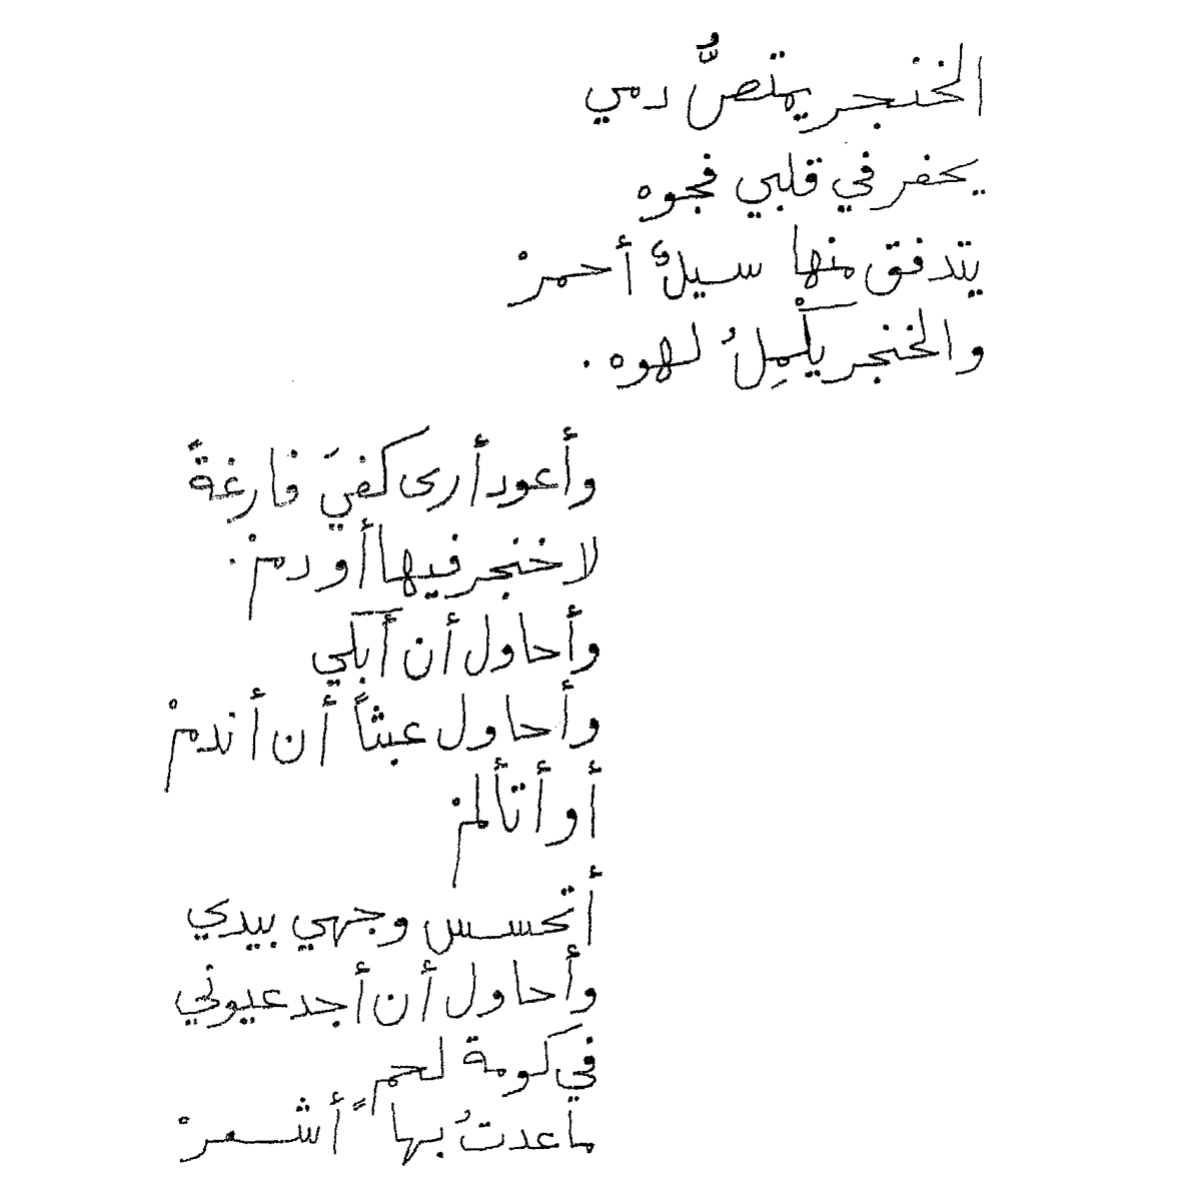 الخنجر يمتصُّ دمي
يحفر في قلبي فجوه
يتدفق منها سيلٌ أحمرْ
والخنجر يكْمِلُ لهوه .
وأعود أرى كفيَ فارغةً
لا خنجر فيها أو دمْ .
وأحاول أن أبكي
وأحاول عبثاً أن أندمْ
أو أتألمْ
أتحسس وجهي بيدي
وأحاول أن أجد عيوني
في كومة لحمٍ
ما عدتُ بها أشعرْ